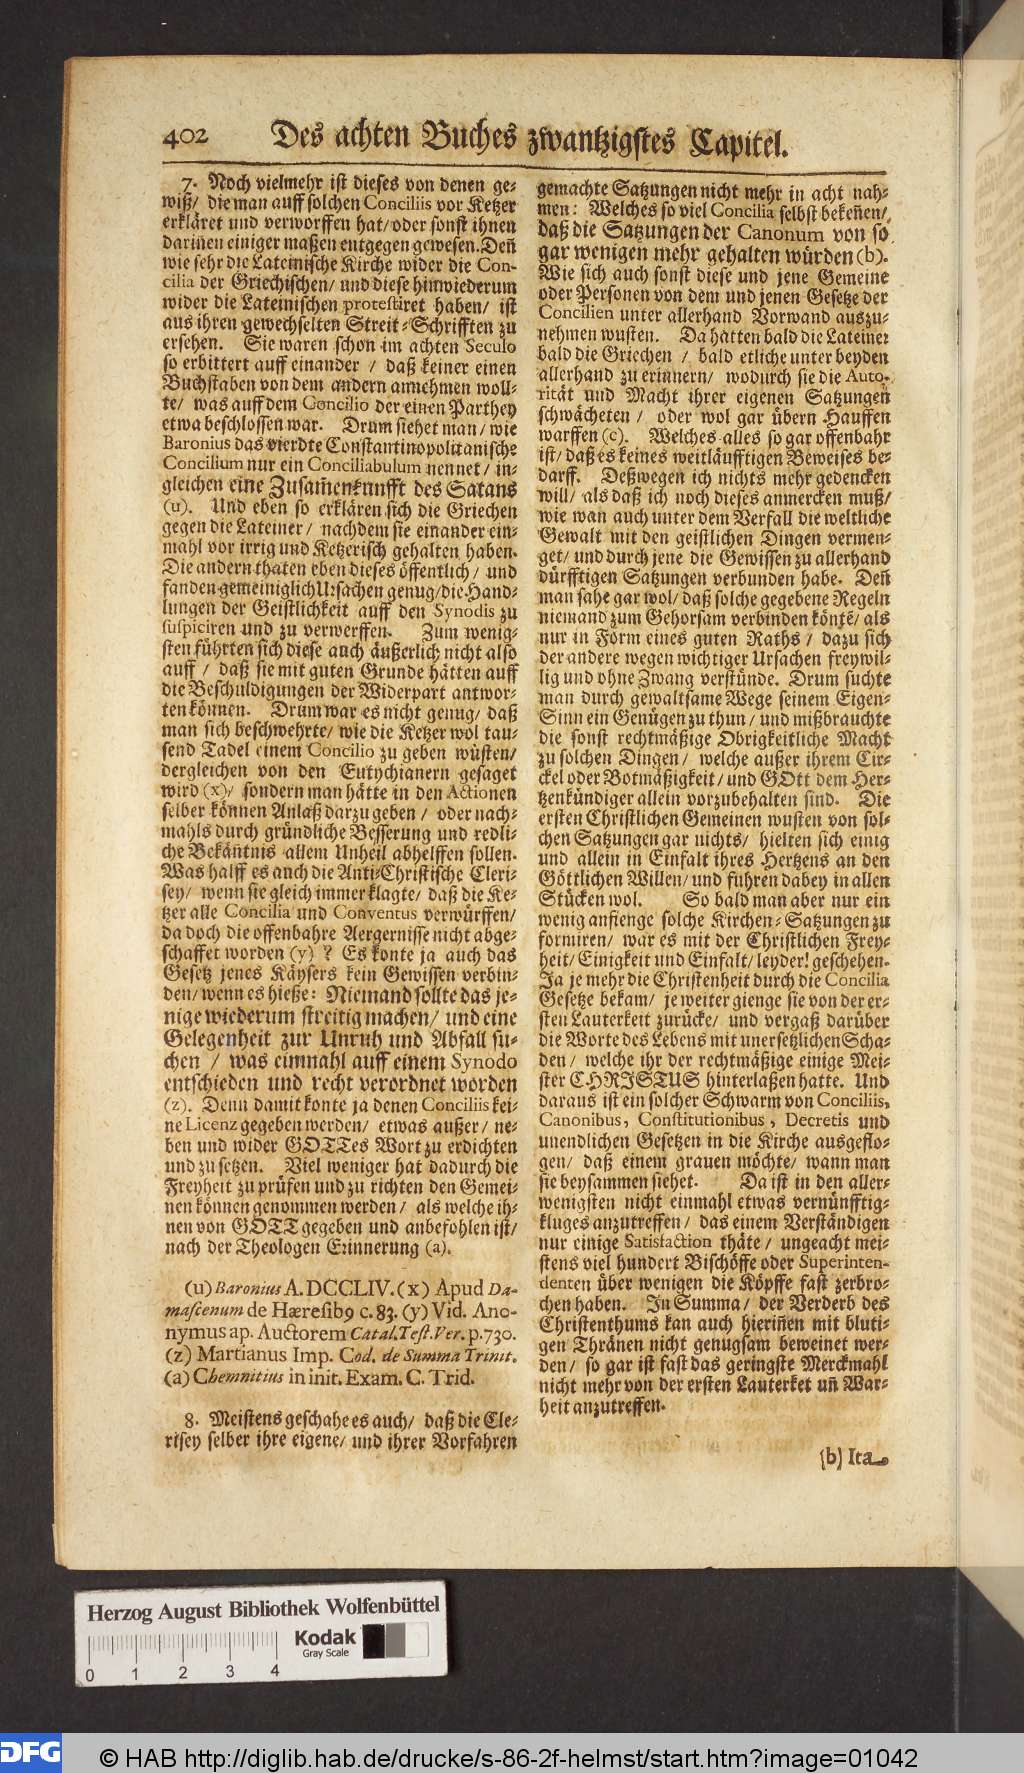 402 Des achten Buches zwantzigstes Capitel.
7. Noch vielmehr ist dieses von denen ge-
wiß/ die man auff solchen Conciliis vor Ketzer
erkläret und verworffen hat/ oder sonst ihnen
dariñen einiger maßen entgegen gewesen. Deñ
wie sehr die Lateinische Kirche wider die Con-
cilia der Griechischen/ und diese hinwiederum
wider die Lateinischen protestiret haben/ ist
aus ihren gewechselten Streit-Schrifften zu
ersehen. Sie waren schon im achten Seculo
so erbittert auff einander / daß keiner einen
Buchstaben von dem andern annehmen woll-
te/ was auff dem Concilio der einen Parthey
etwa beschlossen war. Drum siehet man/ wie
Baronius das vierdte Constantinopolitanische
Concilium nur ein Conciliabulum nennet/ in-
gleichen eine Zusam̃enkunfft des Satans
(u). Und eben so erklären sich die Griechen
gegen die Lateiner/ nachdem sie einander ein-
mahl vor irrig und Ketzerisch gehalten haben.
Die andern thaten eben dieses öffentlich/ und
fanden gemeiniglich Ursachen genug/ die Hand-
lungen der Geistlichkeit auff den Synodis zu
suspiciren und zu verwerffen. Zum wenig-
sten führten sich diese auch äußerlich nicht also
auff / daß sie mit guten Grunde hätten auff
die Beschuldigungen der Widerpart antwor-
ten können. Drum war es nicht genug/ daß
man sich beschwehrte/ wie die Ketzer wol tau-
send Tadel einem Concilio zu geben wüsten/
dergleichen von den Eutychianern gesaget
wird (x)/ sondern man hätte in den Actionen
selber können Anlaß darzu geben/ oder nach-
mahls durch gründliche Besserung und redli-
che Bekäñtnis allem Unheil abhelffen sollen.
Was halff es auch die Anti-Christische Cleri-
sey/ wenn sie gleich immer klagte/ daß die Ke-
tzer alle Concilia und Conventus verwürffen/
da doch die offenbahre Aergernisse nicht abge-
schaffet worden (y) ? Es konte ja auch das
Gesetz jenes Käysers kein Gewissen verbin-
den/ wenn es hieße: Niemand sollte das je-
nige wiederum streitig machen/ und eine
Gelegenheit zur Unruh und Abfall su-
chen / was einmahl auff einem Synodo
entschieden und recht verordnet worden
(z). Denn damit konte ja denen Conciliis kei-
ne Licenz gegeben werden/ etwas außer/ ne-
ben und wider GOTTes Wort zu erdichten
und zu setzen. Viel weniger hat dadurch die
Freyheit zu prüfen und zu richten den Gemei-
nen können genommen werden/ als welche ih-
nen von GOTT gegeben und anbefohlen ist/
nach der Theologen Erinnerung (a).
(u) Baronius A. DCCLIV. (x) Apud Da-
mascenum de Hæresib9 c. 83. (y) Vid. Ano-
nymus ap. Auctorem Catal. Test. Ver. p. 730.
(z) Martianus Imp. Cod. de Summa Trinit.
(a) Chemnitius in init. Exam. C. Trid.
8. Meistens geschahe es auch/ daß die Cle-
risey selber ihre eigene/ und ihrer Vorfahren
gemachte Satzungen nicht mehr in acht nah-
men: Welches so viel Concilia selbst bekeñen/
daß die Satzungen der Canonum von so
gar wenigen mehr gehalten würden (b).
Wie sich auch sonst diese und jene Gemeine
oder Personen von dem und jenen Gesetze der
Concilien unter allerhand Vorwand auszu-
nehmen wusten. Da hatten bald die Lateiner
bald die Griechen / bald etliche unter beyden
allerhand zu erinnern/ wodurch sie die Auto-
rität und Macht ihrer eigenen Satzungen
schwächeten / oder wol gar übern Hauffen
warffen (c). Welches alles so gar offenbahr
ist/ daß es keines weitläufftigen Beweises be-
darff. Deßwegen ich nichts mehr gedencken
will/ als daß ich noch dieses anmercken muß/
wie man auch unter dem Verfall die weltliche
Gewalt mit den geistlichen Dingen vermen-
get/ und durch jene die Gewissen zu allerhand
dürfftigen Satzungen verbunden habe. Deñ
man sahe gar wol/ daß solche gegebene Regeln
niemand zum Gehorsam verbinden köntẽ/ als
nur in Form eines guten Raths / dazu sich
der andere wegen wichtiger Ursachen freywil-
lig und ohne Zwang verstünde. Drum suchte
man durch gewaltsame Wege seinem Eigen-
Sinn ein Genügen zu thun/ und mißbrauchte
die sonst rechtmäßige Obrigkeitliche Macht
zu solchen Dingen/ welche außer ihrem Cir-
ckel oder Botmäßigkeit/ und GOtt dem Her-
tzenkündiger allein vorzubehalten sind. Die
ersten Christlichen Gemeinen wusten von sol-
chen Satzungen gar nichts/ hielten sich einig
und allein in Einfalt ihres Hertzens an den
Göttlichen Willen/ und fuhren dabey in allen
Stücken wol. So bald man aber nur ein
wenig anfienge solche Kirchen-Satzungen zu
formiren/ war es mit der Christlichen Frey-
heit/ Einigkeit und Einfalt/ leyder! geschehen.
Ja je mehr die Christenheit durch die Concilia
Gesetze bekam/ je weiter gienge sie von der er-
sten Lauterkeit zurücke/ und vergaß darüber
die Worte des Lebens mit unersetzlichen Scha-
den/ welche ihr der rechtmäßige einige Mei-
ster CHRISTUS hinterlaßen hatte. Und
daraus ist ein solcher Schwarm von Conciliis,
Canonibus, Constitutionibus, Decretis und
unendlichen Gesetzen in die Kirche ausgeflo-
gen/ daß einem grauen möchte/ wann man
sie beysammen siehet. Da ist in den aller-
wenigsten nicht einmahl etwas vernünfftig-
kluges anzutreffen/ das einem Verständigen
nur einige Satisfaction thäte/ ungeacht mei-
stens viel hundert Bischöffe oder Superinten-
denten über wenigen die Köpffe fast zerbro-
chen haben. In Summa/ der Verderb des
Christenthums kan auch hieriñen mit bluti-
gen Thränen nicht genugsam beweinet wer-
den/ so gar ist fast das geringste Merckmahl
nicht mehr von der ersten Lauterket uñ War-
heit anzutreffen.
(b) Ita
Herzog August Bibliothek Wolfenbüttel
Kodak
Gray Scale
0 1 2 3 4
DFG © HAB http://diglib.hab.de/drucke/s-86-2f-helmst/start.htm?image=01042